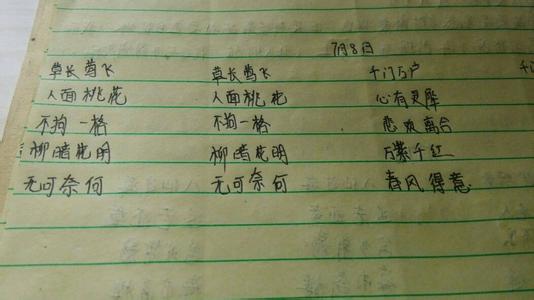 7月8日
草长莺飞 草长莺飞 千门万户 千
人面桃花 人面桃花 心有灵犀
不拘一格 不拘一格 悲欢离合
柳暗花明 柳暗花明 万紫千红
无可奈何 无可奈何 春风得意